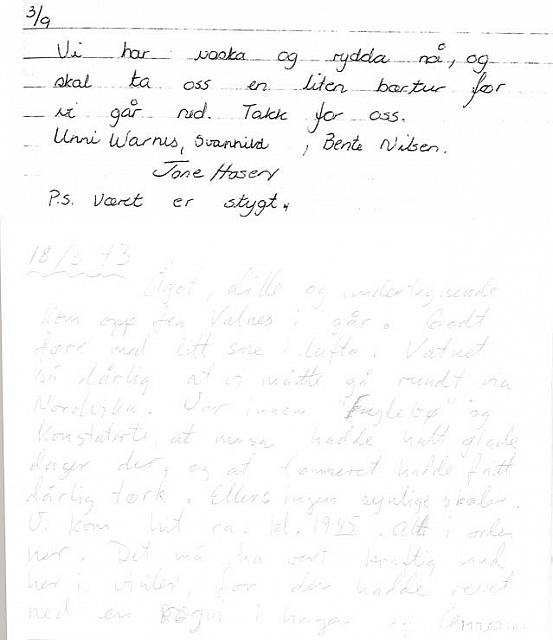 3/9
Vi har vaska og rydda nå, og
skal ta oss en liten bærtur før
vi går ned. Takk for oss.
Unni Warnes, Svanhild, Bente Nilsen.
Tone
P.S. Været er stygt.
18/3-73
Ågot, og undertegnende
kom opp fra Valnes i går. Godt
føre med litt snø i lufta. Vatnet
så dårlig at vi måtte gå rundt via
Nordvika. Var innom "Fuglebo" og
konstaterte at musa hadde hatt glade
dager der, og at tømmeret hadde fått
dårlig tørk. Ellers ingen synlige skader.
Vi kom hit ca. kl. 1945. Alt i orden
her. Det må ha vært kraftig vind
her i vinter, for den hadde revet
ned en i hagen og